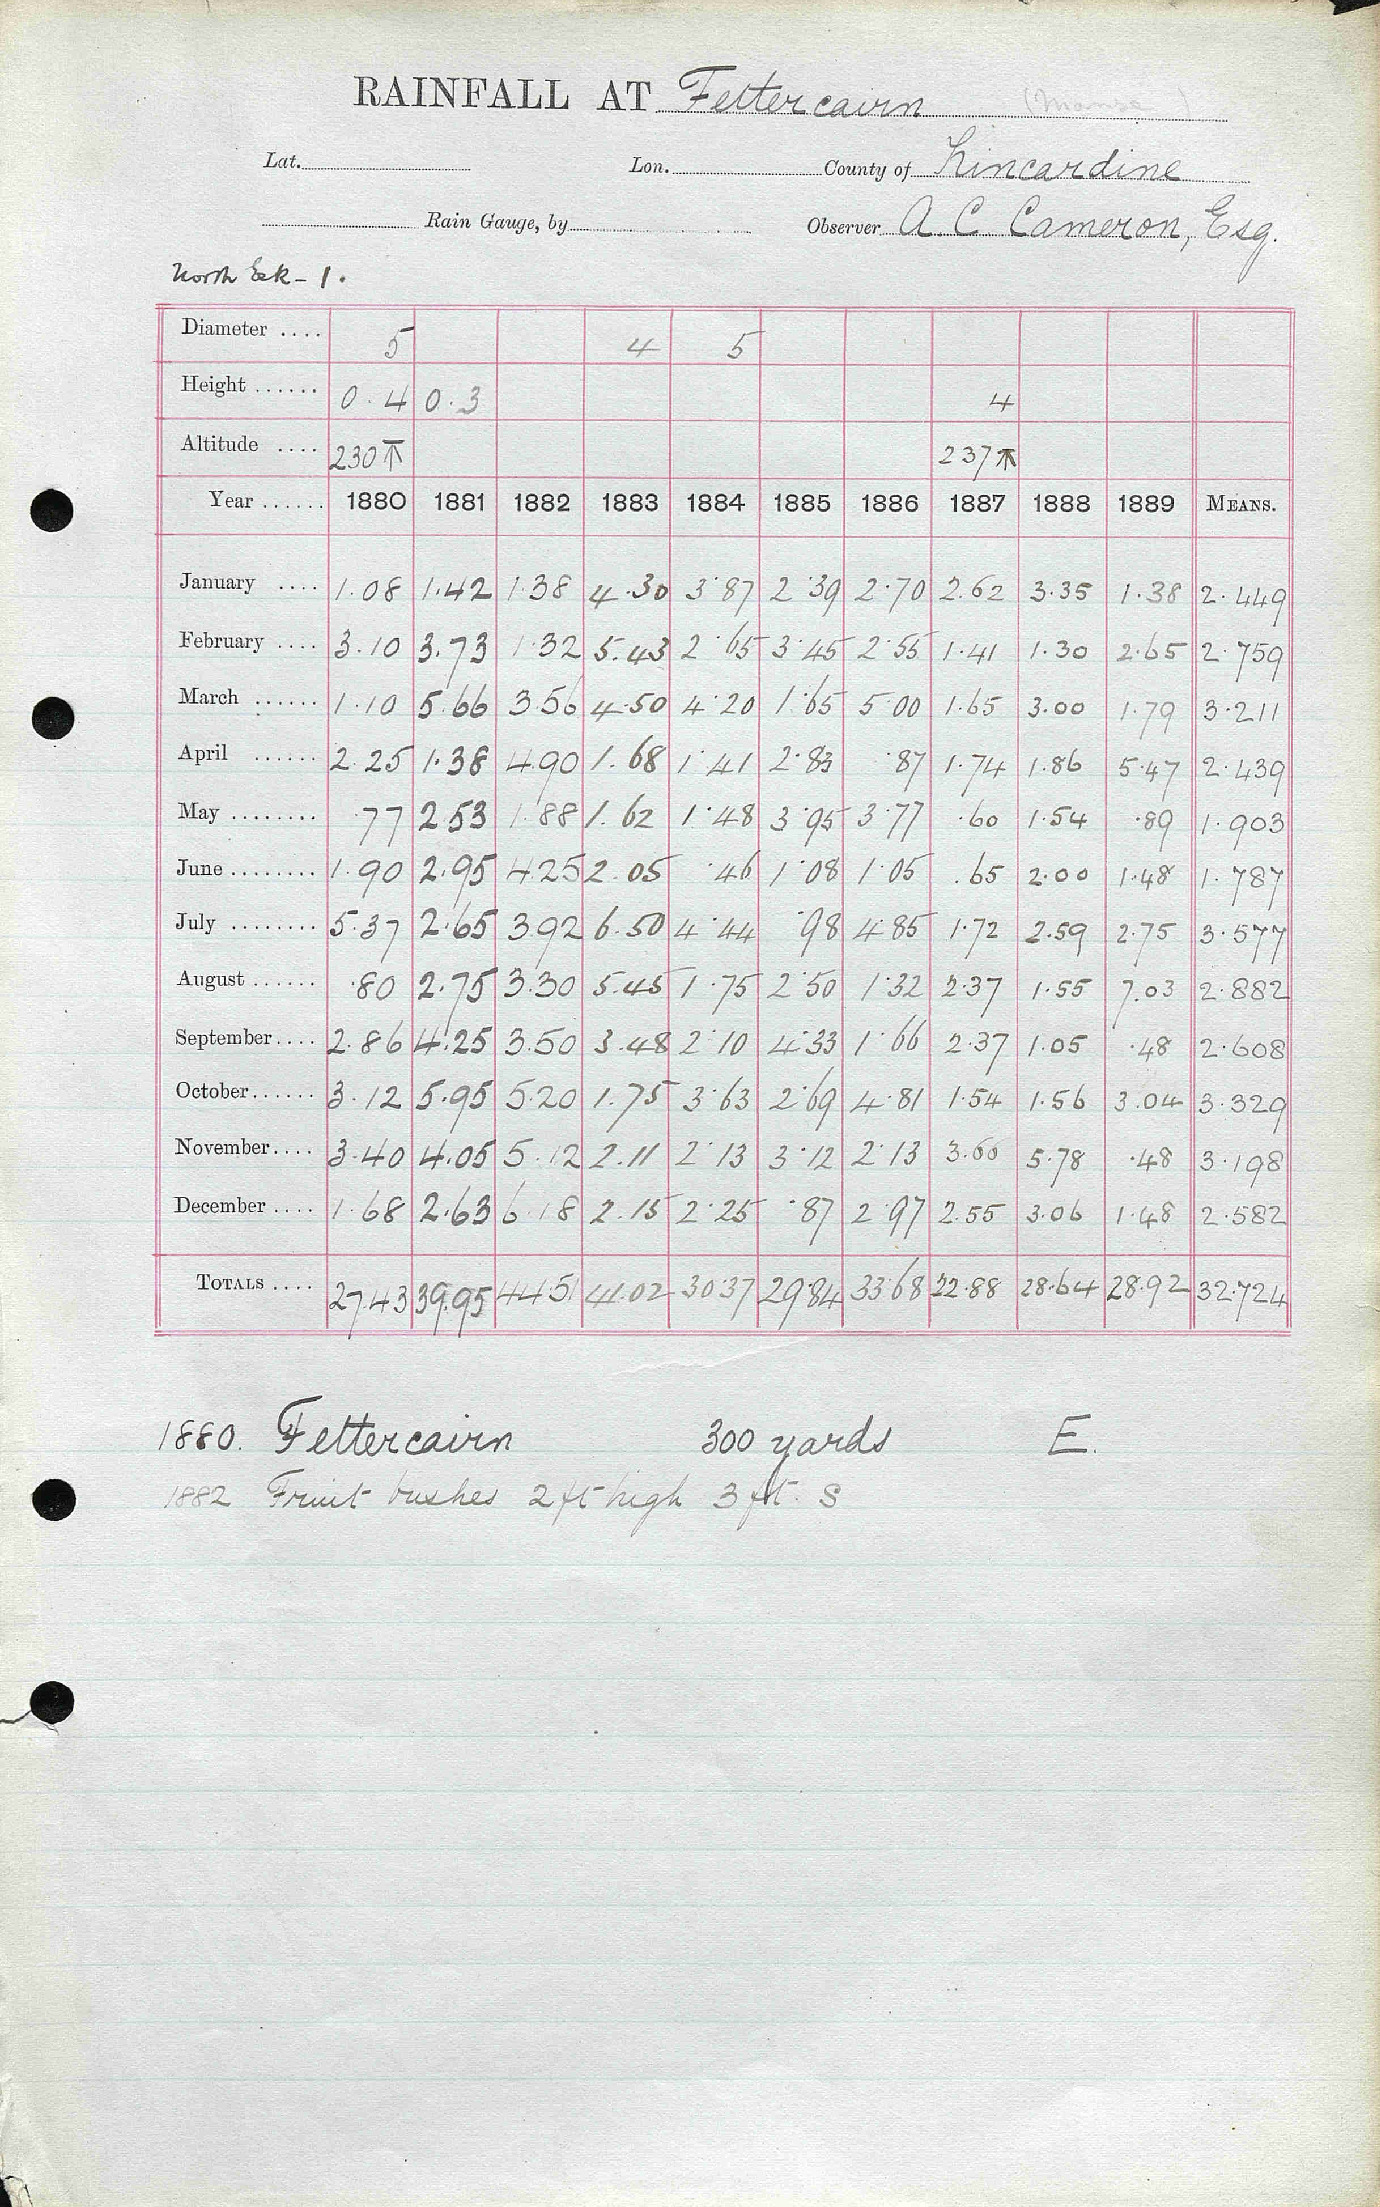 RAINFALL AT Fettercairn (Manse)
Lat. Lon. County of Kincardine
Rain Gauge, by Observer A. C. Cameron, Esq.
North Esk - 1.
Diameter .... 5 4 5
Height ...... 0.4 0.3 4
Altitude .... 230 237
Year ...... 1880 1881 1882 1883 1884 1885 1886 1887 1888 1889 MEANS.
January .... 1.08 1.42 1.38 4.30 3.87 2.39 2.70 2.62 3.35 1.38 2.449
February .... 3.10 3.73 1.32 5.43 2.65 3.45 2.55 1.41 1.30 2.65 2.759
March ...... 1.10 5.66 3.56 4.50 4.20 1.65 5.00 1.65 3.00 1.79 3.211
April ...... 2.25 1.38 4.90 1.68 1.41 2.83 .87 1.74 1.86 5.47 2.439
May ........ .77 2.53 1.88 1.62 1.48 3.95 3.77 .60 1.54 .89 1.903
June ........ 1.90 2.95 4.25 2.05 .46 1.08 1.05 .65 2.00 1.48 1.787
July ........ 5.37 2.65 3.92 6.50 4.44 .98 4.85 1.72 2.59 2.75 3.577
August ...... .80 2.75 3.30 5.45 1.75 2.50 1.32 2.37 1.55 7.03 2.882
September .... 2.86 4.25 3.50 3.48 2.10 4.33 1.66 2.37 1.05 .48 2.608
October ...... 3.12 5.95 5.20 1.75 3.63 2.69 4.81 1.54 1.56 3.04 3.329
November .... 3.40 4.05 5.12 2.11 2.13 3.12 2.13 3.66 5.78 .48 3.198
December .... 1.68 2.63 6.18 2.15 2.25 .87 2.97 2.55 3.06 1.48 2.582
TOTALS .... 27.43 39.95 44.51 41.02 30.37 29.84 33.68 22.88 28.64 28.92 32.724
1880. Fettercairn 300 yards E.
1882 Fruit bushes 2 ft high 3 ft. S